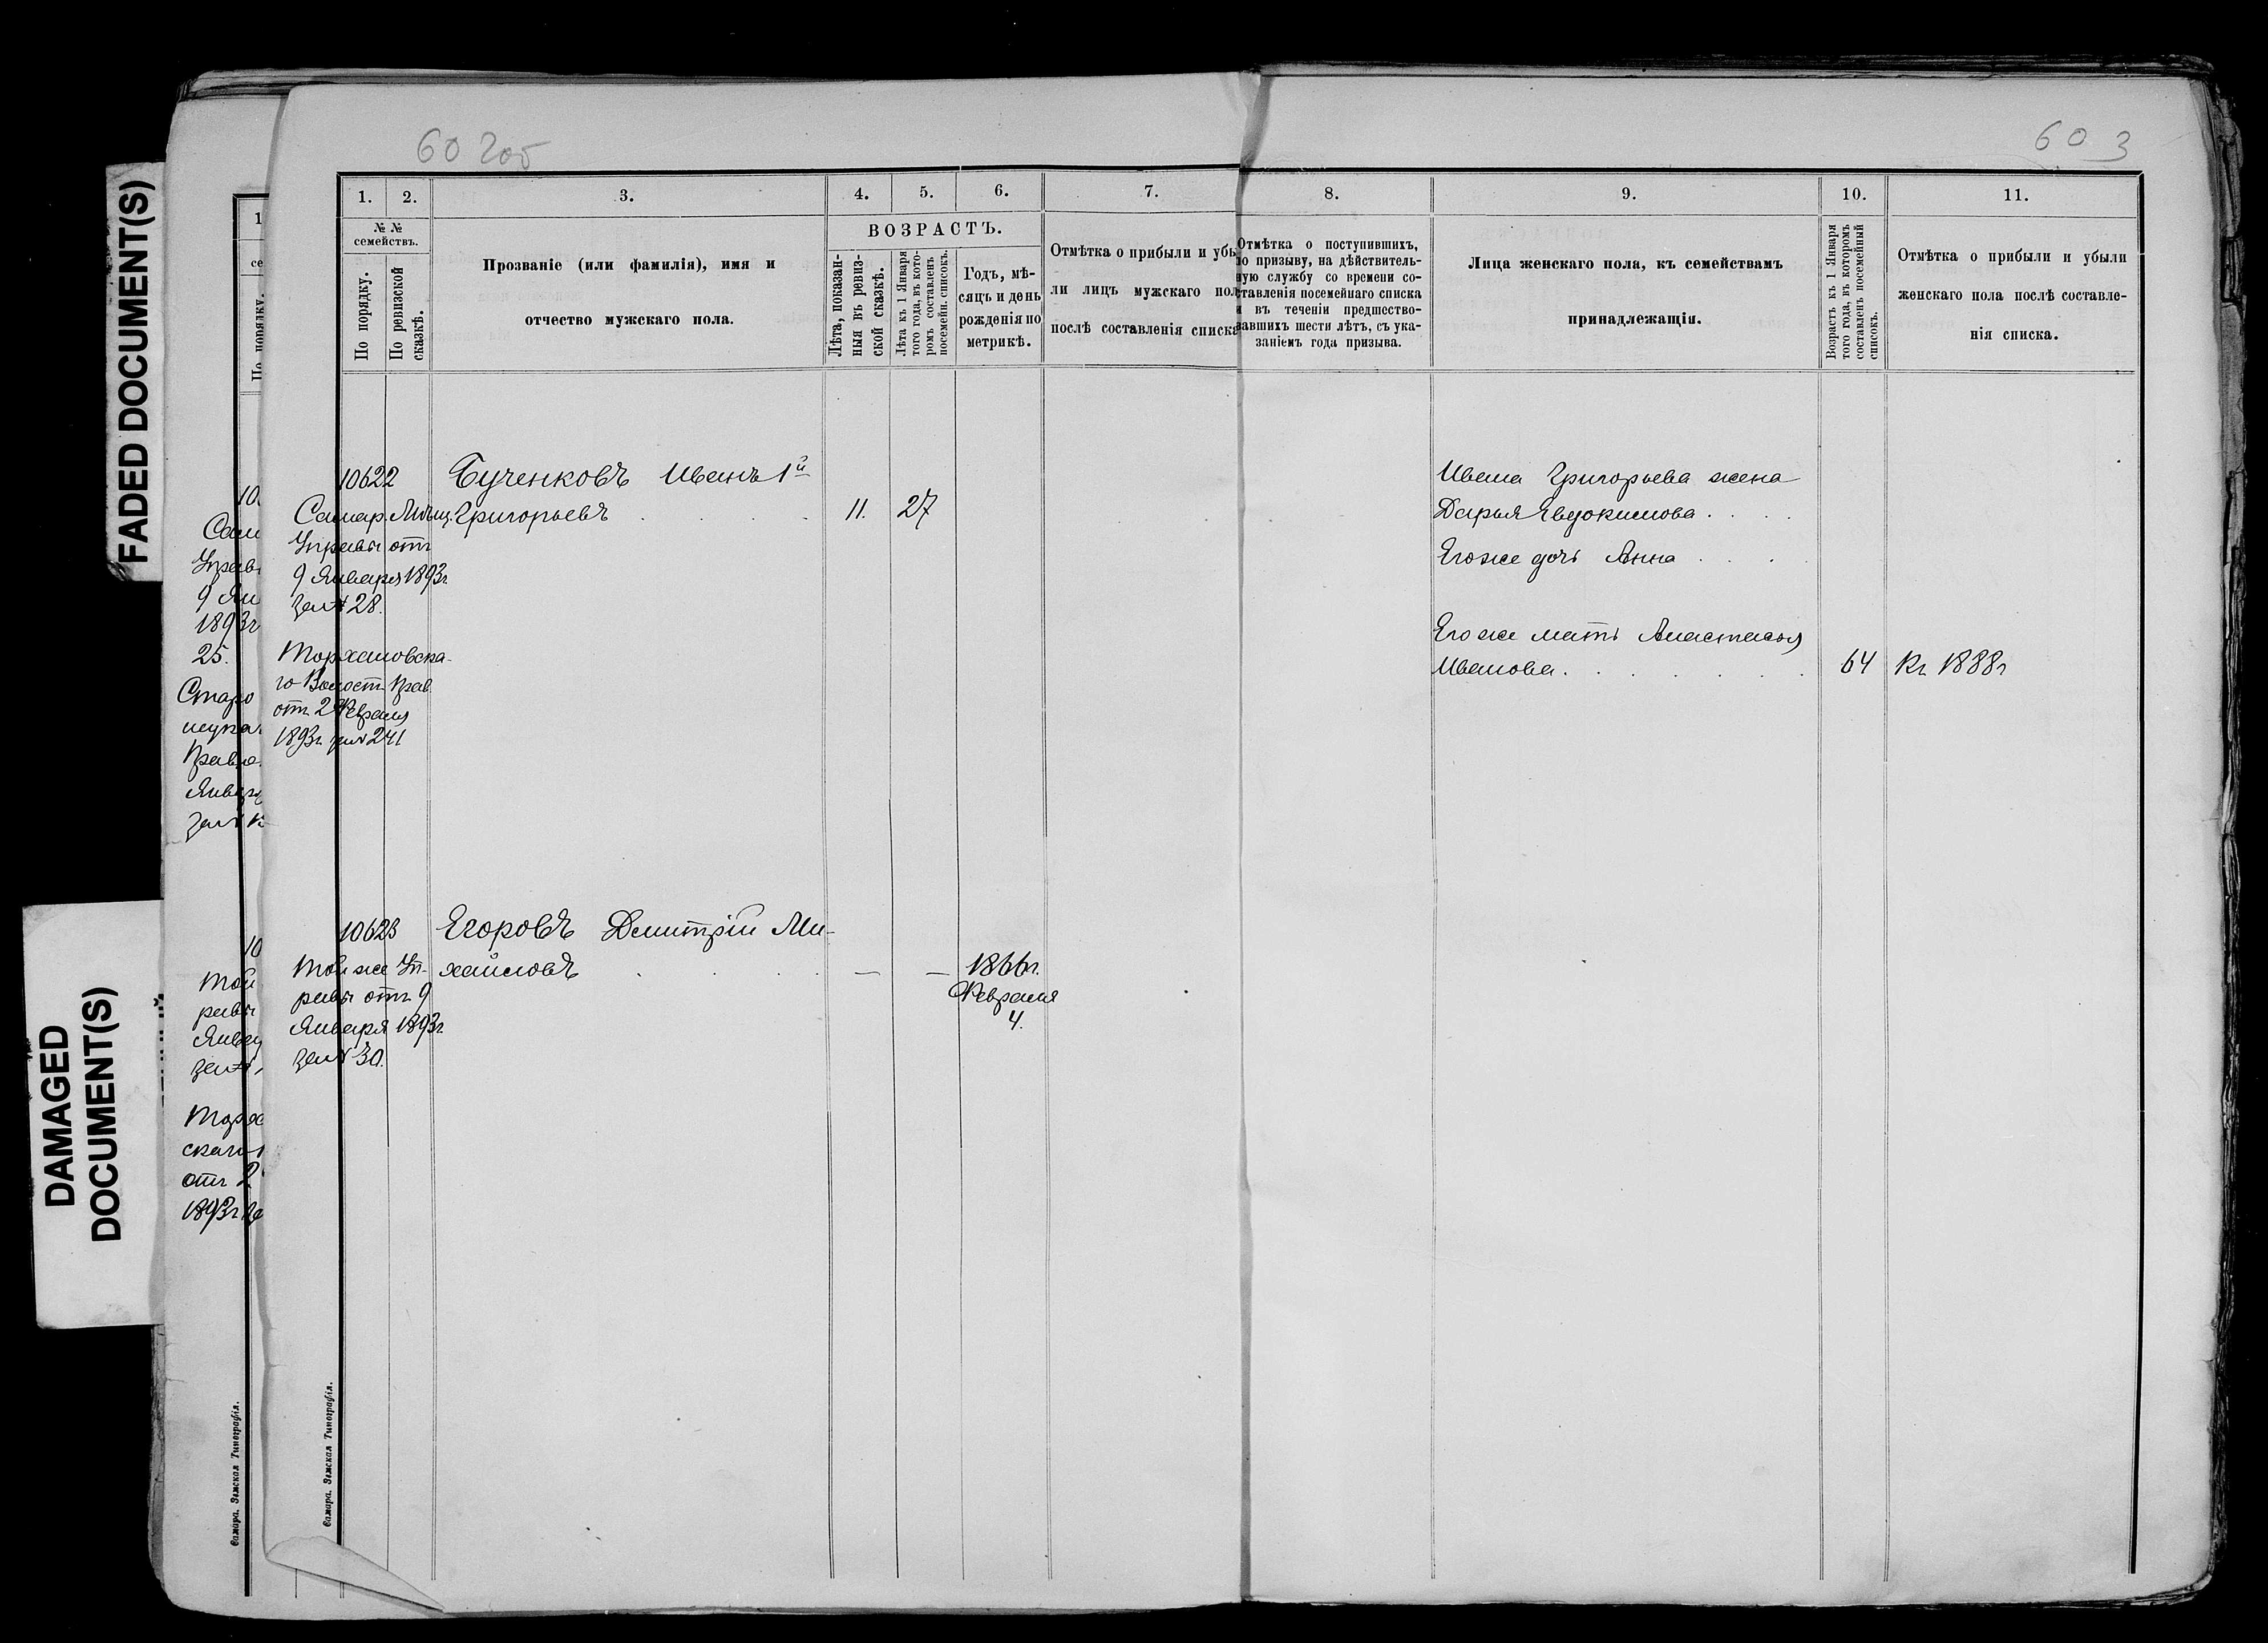 FADED DOCUMENT(S)
DAMAGED
DOCUMENT(S)
602об
603
1. 2. 3. 4. 5. 6. 7. 8. 9. 10. 11.
№ №
семействъ.
По порядку.
По ревизской
сказкѣ.
Прозваніе (или фамилія), имя и
отчество мужскаго пола.
ВОЗРАСТЪ.
Лѣта, показан-
ныя въ ревиз-
ской сказкѣ.
Лѣта къ 1 Января
того года, въ кото-
ромъ составленъ
посемейн. списокъ.
Годъ, мѣ-
сяцъ и день
рожденія по
метрикѣ.
Отмѣтка о прибыли и убы
ли лицъ мужскаго пол
послѣ составленія списка
Отмѣтка о поступившихъ,
по призыву, на дѣйствитель-
ную службу со времени со-
ставленія посемейнаго списка
и въ теченіи предшество-
вавшихъ шести лѣтъ, съ ука-
заніемъ года призыва.
Лица женскаго пола, къ семействамъ
принадлежащія.
Возрастъ къ 1 Января
того года, въ которомъ
составленъ посемейный
списокъ.
Отмѣтка о прибыли и убыли
женскаго пола послѣ составле-
нія списка.
10622 Бученковъ Иванъ 1й
Самар. Мѣщ. Григорьевъ 11. 27
Управы отъ
9 Января 1893г.
за № 28.
Торхановска-
го Волост. Прав.
отъ 2 Февраля
1893г. за № 241
Ивана Григорьева жена
Дарья Евдокимова
Его же дочь Анна
Его же мать Анастасья
Иванова 64 Къ 1888г
10623 Егоровъ Дмитрій Ми-
Той же Уп- хайловъ — — 1866г.
равы отъ 9 Февраля
Января 1893г. 4.
за № 30.
Самара. Земская Типографія.
Самара. Земская Типографія.